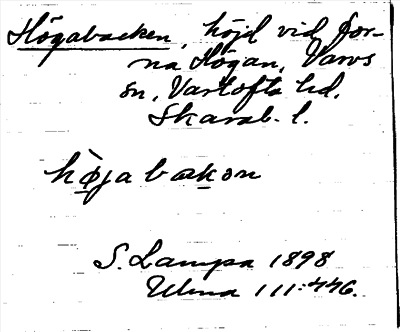 Högabacken, höjd vid for-
na Högan, Varvs
sn, Vartofta hd.
Skarab. l.
högabakon
S. Lampa 1898
Ulma 111:446.